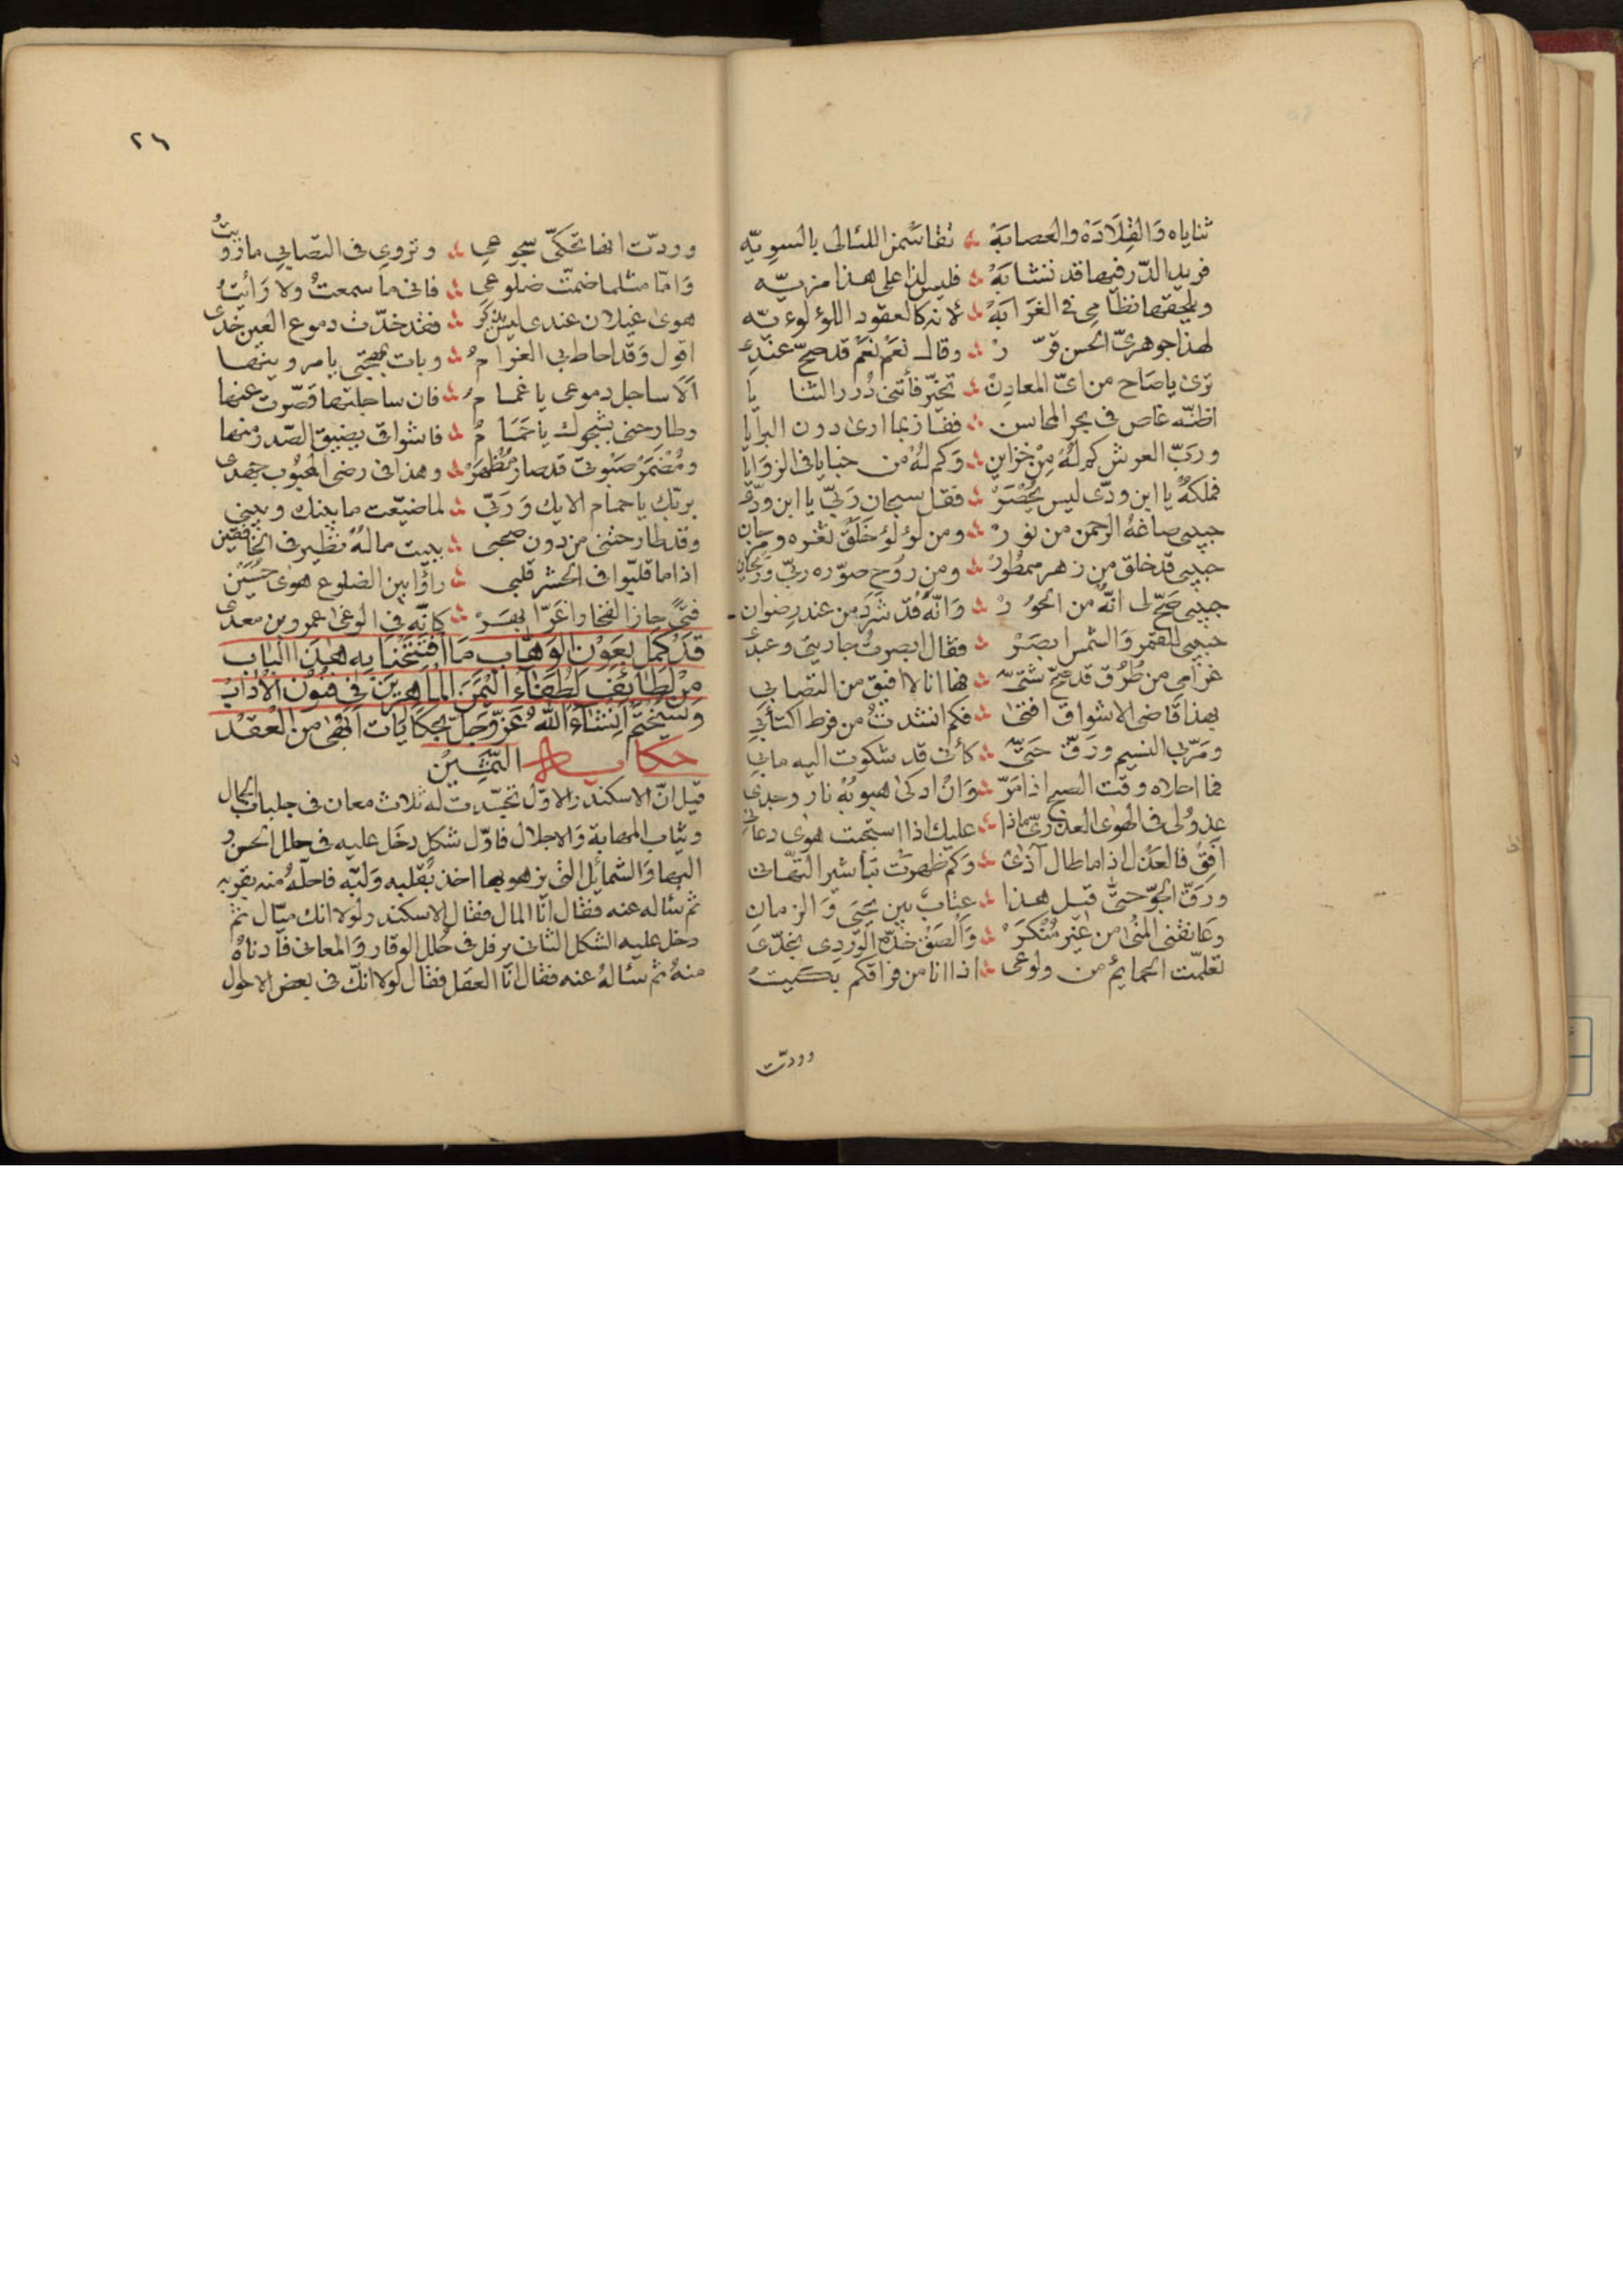 ثناياه وَالقِلَادَهْ والعصابَهْ ؞ تقاسَمنَ اللئالى بالسويّه
فريد الدّر فيها قد تشابَهْ ؞ فليس لذا على هذا مزيّه
ويلحقها نظامى فى الغَرَابَهْ ؞ لانه كالعقود اللؤلوءيّه
لهذا جوهرىّ الحسن قرّ رْ ؞ وقال نعَم نعَم قد صحّ عندى
ترى ياصَاح من اىّ المعادِنْ ؞ تخيّر فأتنى دُرر الثنا يا
اظنّه غاص فى بحر المحاسن ؞ ففاز بما ارى دون البرايا
وربّ العرش كم لهُ مِنْ خزاين ؞ وَكم لهُ من خبايا فى الزوَايا
فملكهُ يا ابن ودّى ليس يُحْصَرْ ؞ فقل سبحان رَبّى يا ابن ودّى
حبيبى صاغهُ الرحمن من نو رْ ؞ ومن لؤلؤ خَلَقْ ثغره ومرجان
حبيبى قد خلق من زهر ممطُورْ ؞ ومن رَوُح صوّره ربّى وَريحان
حبيبى صَحّ لى انّهُ من الحوُ رْ ؞ وَانّهُ قد شَرَد من عند رضوان
حبيبى للقمر وَالشمس ابصَرْ ؞ فقال ابصرتُ جاريتى وعبدى
غرَامى من طُرُق قد صَحّ شتىّ ؞ فها انا لا افيق من التصابى
بهذا قَاضى الاشواق افتى ؞ فكم انشدتُ من فرط اكتأبى
ومَرّ بى النسيم ورَقّ حَتىّ ؞ كأنى قد شكوت اليه مابى
فما احلاه وقت الصبح اذا مَرّ ؞ وَانْ اذكى هبوبُهْ نار وجدى
عذولى فى الهوى العذرىّ ماذا ؞ عليك اذا استجبت هوى دعانى
اَفِقْ فالعَذل اذا ما طال آذى ؞ وَكم ظهرَت تباشير التّهانى
ورَقّ الجوّ حَتىّ قبل هذا ؞ عتابٌ بين يحيَى وَالزمان
وعَانقنى المُنى من غير مُنكَرَ ؞ وَاَلصَقْ خدّه الورْدى بخدّى
تعلمّت الحمايمُ من ولوعى ؞ اذا انا من فراقكم بكَيتُ
وودّت
٢٦
وودّت انها تحكىّ سجوعى ؞ وتروى فى التصابى ما رَوَيتُ
وَامّا مثلما ضمتّ ضلوعى ؞ فانى ما سمعتُ ولا رَأيتُ
هوى غيلان عندى ليس يُذكَر ؞ فقد خدّت دموع العين خدّى
اقول وَقد احاط بى الغرا مُ ؞ وبات بمهجتى يامر وينهى
اَلَا ساجل دموعى يا غما مُ ؞ فان ساجلتها قصّرت عنها
وطارحنى بشجوك يا حَمَا مُ ؞ فاشواقى يضيق الصّدر منها
ومُضمَرْ صَبْوتى قد صار مُظْهَرْ ؞ وهذا فى رضى المحبُوب جهدى
بربّك يا حمام الايك وَرَبّى ؞ لما ضيّعت ما بينك وبينى
وقد طارحتنى من دون صحبى ؞ ببيت مالهُ نظير فى الخافقين
اذا ما قلّبوا فى الحشر قلبى ؞ رأوا بين الضلوع هوى حُسَيْن
فتىً حاز الفخار اغَرّ ابقسَرْ ؞ كانّه فى الوغى عمرو بن معدى
قَدْ كَمَل بِعَوْنِ الوَهّابِ مَا افتَتَحْنَا بِهِ هٰذَا الْبَاب
مِنْ لَطَائِفِ لُطَفَاءِ الْيَمَنِ الْمَاهِرِيْنَ فِى فُنُوْنِ الْآدَابْ
وَسَنُخْتِمُ اِنْشَاءَ اللّٰهُ عَزّ وَجَلّ بِحِكَايَات اَبْهَى مِنَ الْعِقدْ
الثَّمِيْن حكايــة
قيل انّ الاسكندر الاوّل تجسّدت له ثلاث معان فى جلباب الجمال
وثياب المهابة وَالاجلال فاوّل شكل دخَل عليه فى حلل الحسن و
البها وَالشمائل التى يزهو بها اخذ بقلبه وَلبّه فاحلّهُ منه بقربه
ثم سٔاله عنه فقال انا المال فقال الاسكندر لولا انك ميّال ثم
دخل عليه الشكل الثانى يرفل فى حُلل الوقار وَالمعانى فادناهُ
منهُ ثم سٔالهُ عنه فقال انا العقل فقال لولا انّك فى بعض الاحوال